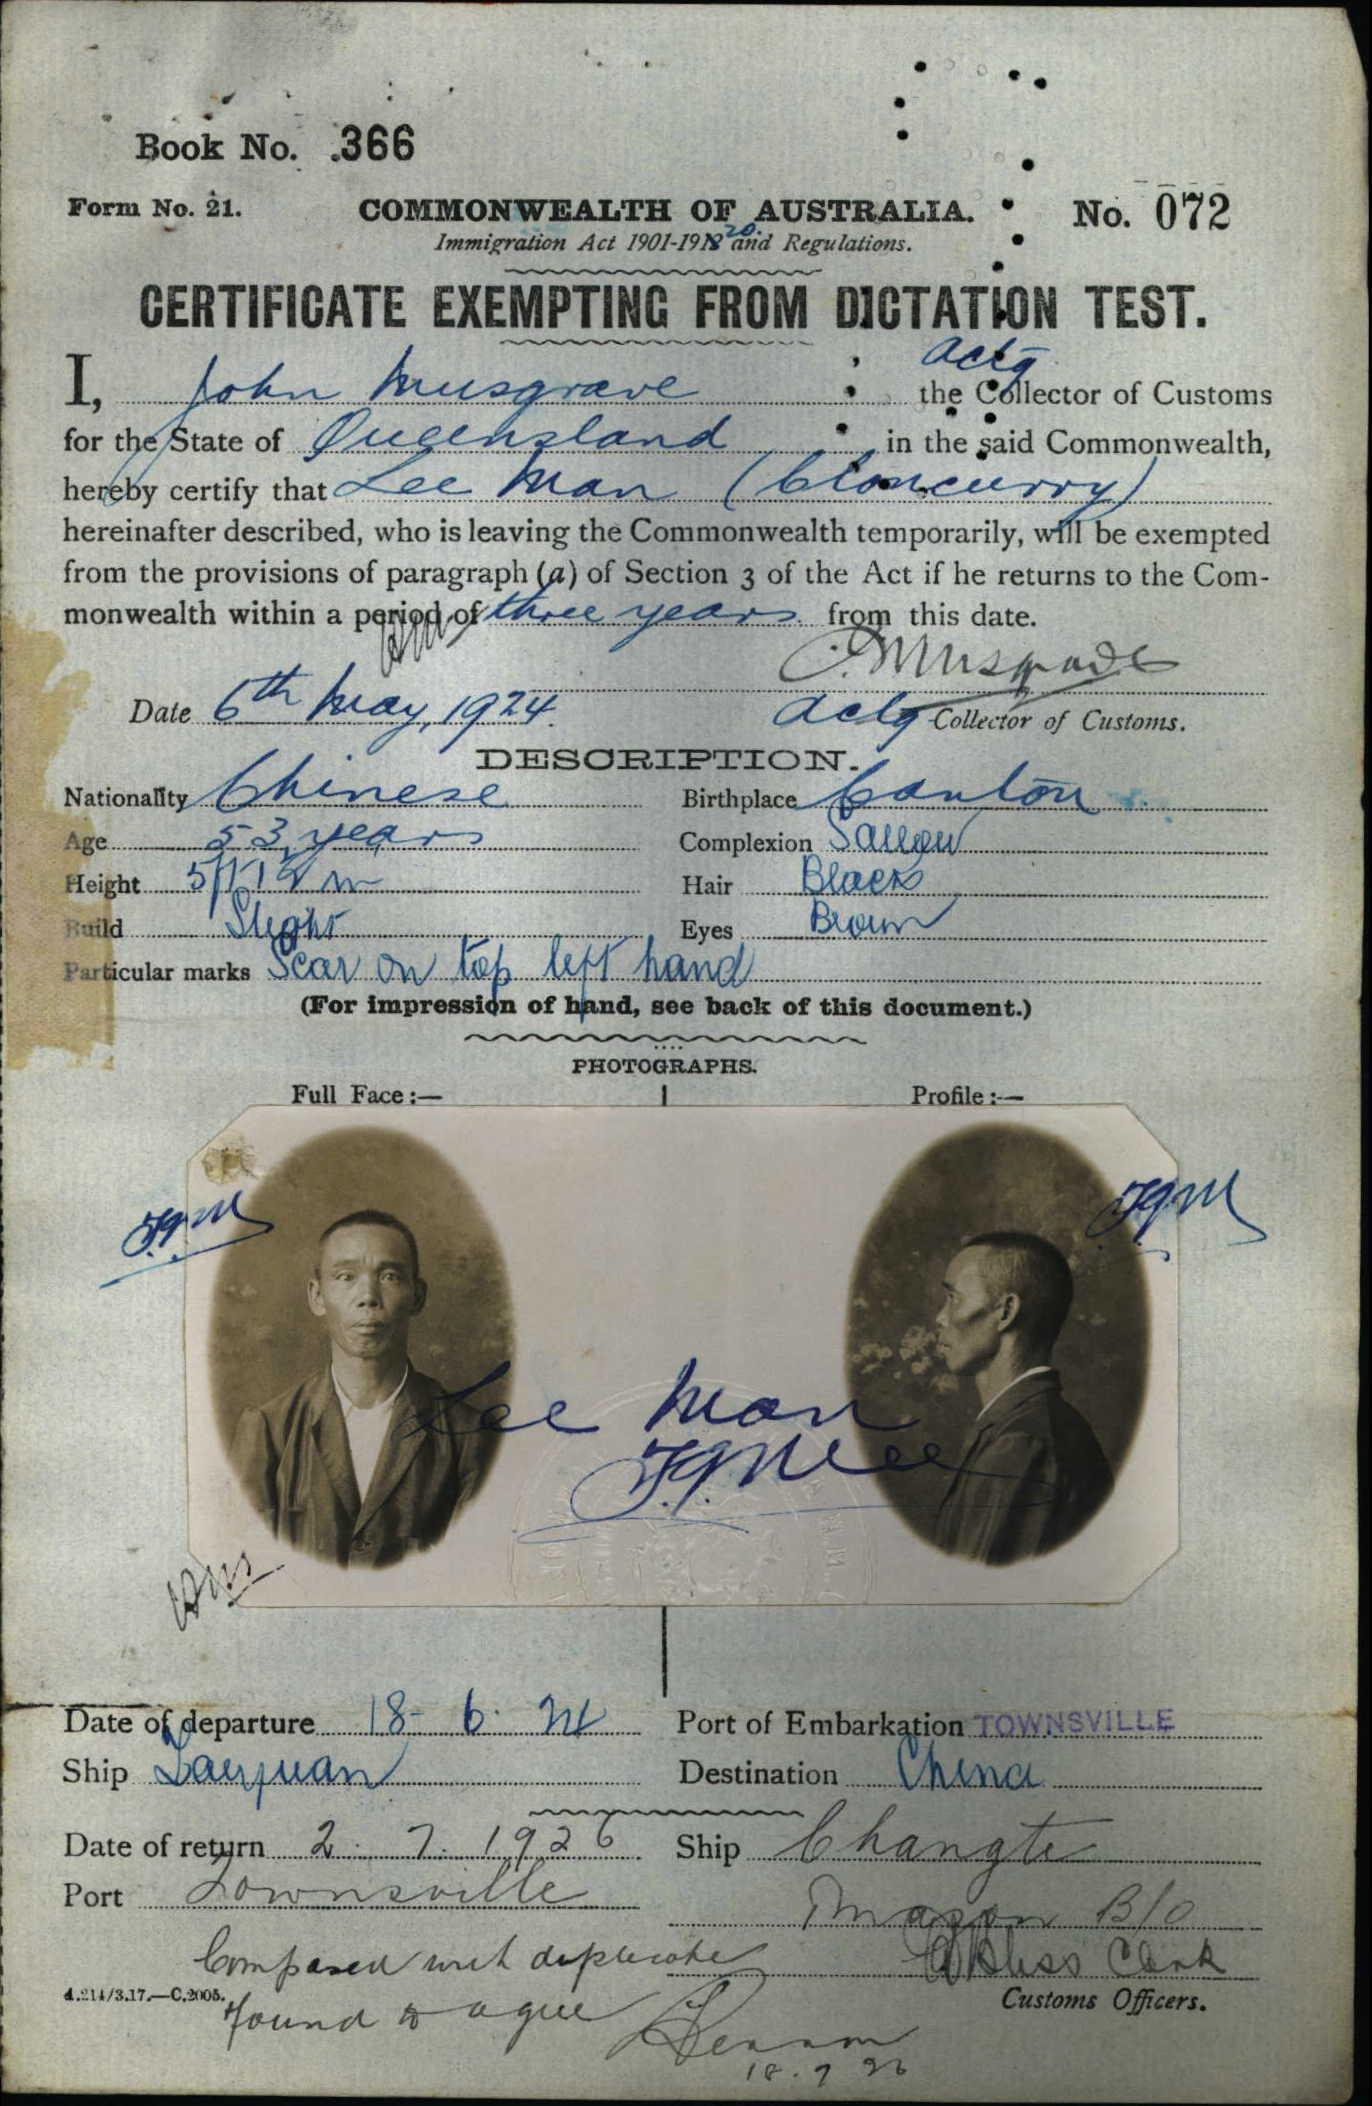 Book No. 366
Form No. 21. COMMONWEALTH OF AUSTRALIA. No. 072
Immigration Act 1901-1918 20. and Regulations.
CERTIFICATE EXEMPTING FROM DICTATION TEST.
I, John Musgrave Actg the Collector of Customs
for the State of Queensland in the said Commonwealth,
hereby certify that Lee Man (Cloncurry)
hereinafter described, who is leaving the Commonwealth temporarily, will be exempted
from the provisions of paragraph (a) of Section 3 of the Act if he returns to the Com-
monwealth within a period of three years from this date.
Musgrave
Date 6th May, 1924. Actg Collector of Customs.
DESCRIPTION.
Nationality Chinese Birthplace Canton
Age 53 years Complexion Sallow
Height Hair Black
Build Slight Eyes Brown
Particular marks Scar on top left hand
(For impression of hand, see back of this document.)
PHOTOGRAPHS.
Full Face:— Profile:—
Lee Man
Date of departure 18-6-24 Port of Embarkation TOWNSVILLE
Ship Taiyuan Destination China
Date of return 2.7.1926 Ship Changte
Port Townsville
Compared with duplicate
Clerk
4.214/3.17.—C.2005. Customs Officers.
found to agree
18.7.26